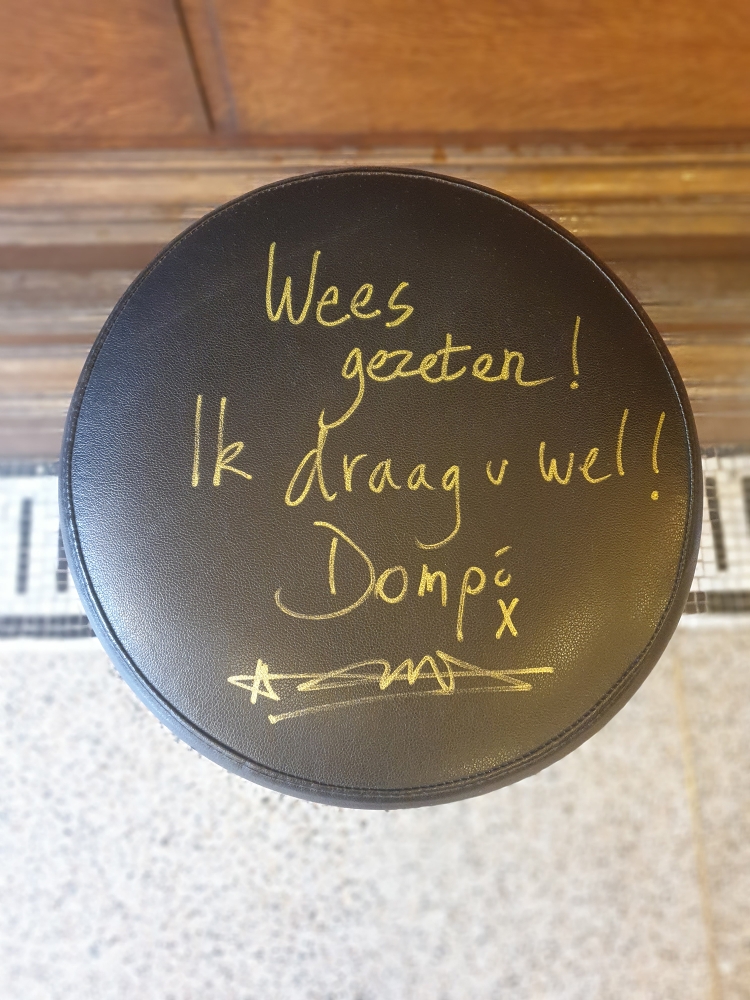 Wees
gezeten!
Ik draag u wel!
Dompi
x